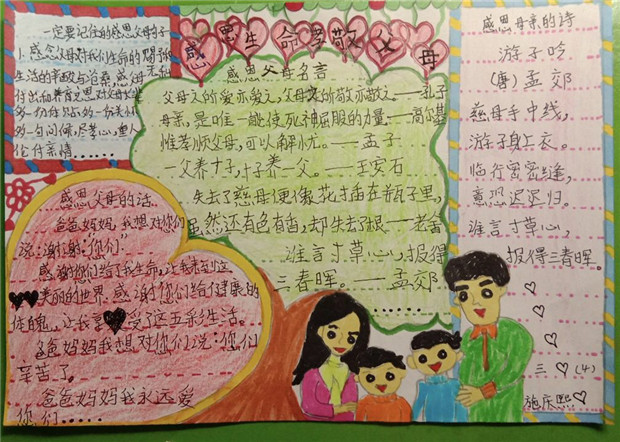 感恩生命孝敬父母
一定要记住的感恩父母的句子
1.感念父母对我们生命的赐予
生活的
付出和养育之恩
的一句问候,尽孝心,重人
伦付亲情……
感恩父母名言
父母之所爱亦爱之,父母之所敬亦敬之。——孔子
母亲,是唯一能使死神屈服的力量。——高尔基
惟孝顺父母,可以解忧。——孟子
一父养十子,十子养一父。——王安石
失去了慈母便像花插在瓶子里,
虽然还有色有香,却失去了根——老舍
谁言寸草心,报得
三春晖。——孟郊
感恩父母的话
爸爸妈妈,我想对你们
说:谢谢你们!
感谢你们给了我生命,让我来到这
美丽的世界.感谢你们给了健康的
体魄,让我享受了这五彩生活。
爸爸妈妈我想对你们说:你们
辛苦了。
爸爸妈妈我永远爱
你们……
感恩母亲的诗
游子吟
(唐)孟郊
慈母手中线,
游子身上衣。
临行密密缝,
意恐迟迟归。
谁言寸草心,
报得三春晖。
三(4)
施庆熙